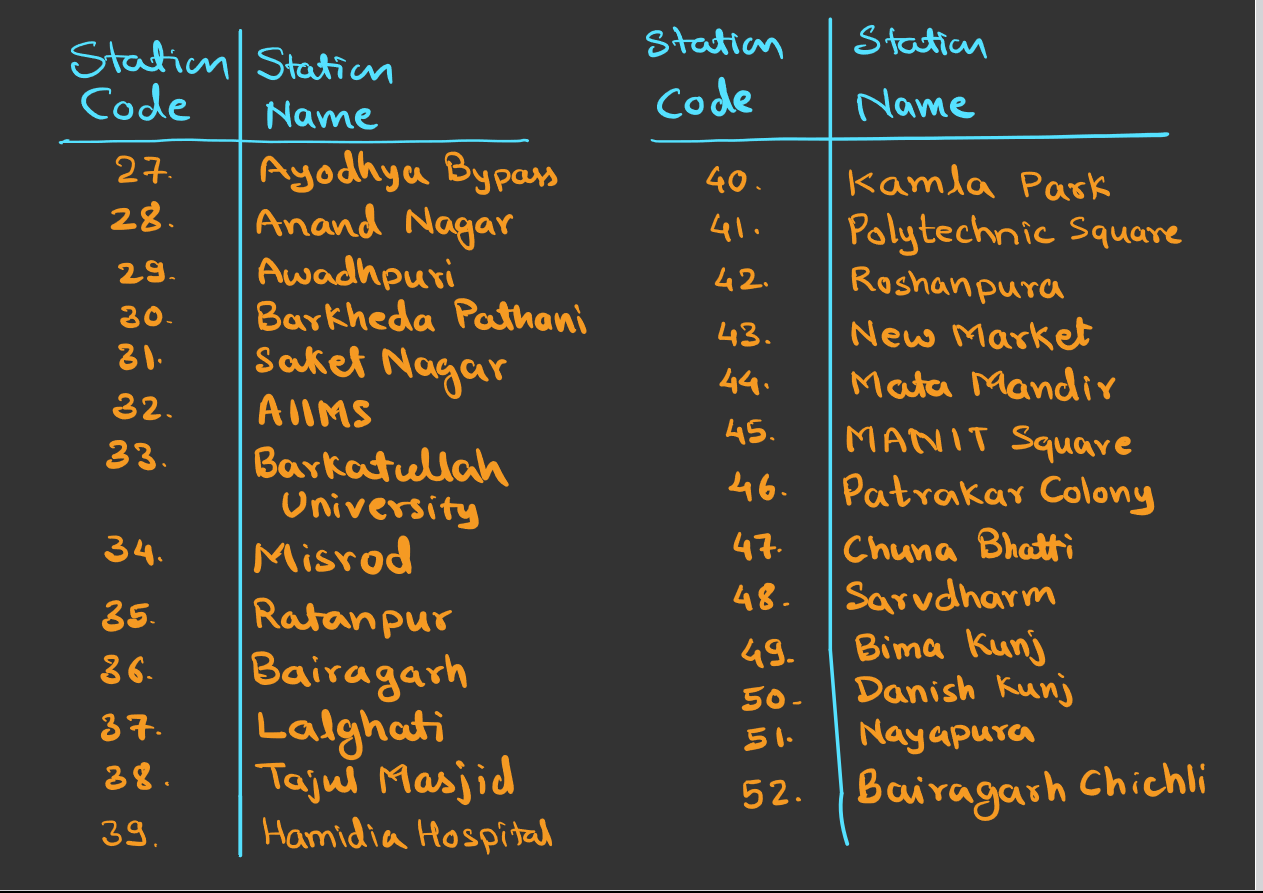 Station Station
Code Name
27. Ayodhya Bypass
28. Anand Nagar
29. Awadhpuri
30. Barkheda Pathani
31. Saket Nagar
32. AIIMS
33. Barkatullah
University
34. Misrod
35. Ratanpur
36. Bairagarh
37. Lalghati
38. Tajul Masjid
39. Hamidia Hospital
Station Station
Code Name
40. Kamla Park
41. Polytechnic Square
42. Roshanpura
43. New Market
44. Mata Mandir
45. MANIT Square
46. Patrakar Colony
47. Chuna Bhatti
48. Sarvdharm
49. Bima Kunj
50. Danish Kunj
51. Nayapura
52. Bairagarh Chichli